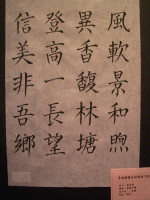 風軟景和煦
異香馥林塘
登高一長望
信美非吾鄉